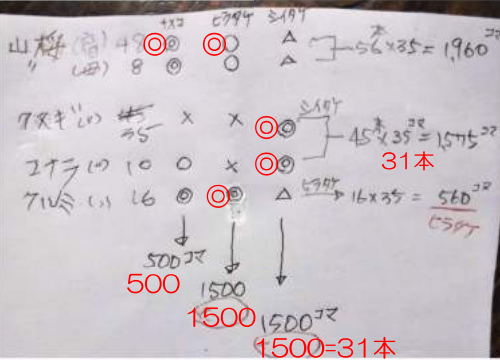 ナメコ ヒラタケ シイタケ
山桜(宿) 48 ◎◎ ◎○ △
〃 (母) 8 ◎ ○ △ 56本×35=1,960コマ
クヌギ(〃) 35 × × ◎◎ シイタケ
45本×35コマ=1,575コマ
31本
コナラ(〃) 10 ○ × ◎◎
クルミ(〃) 16 ◎ ◎◎ △ ヒラタケ 16×35=560コマ
ヒラタケ
500コマ
500
1500
1500
1500コマ
1500=31本